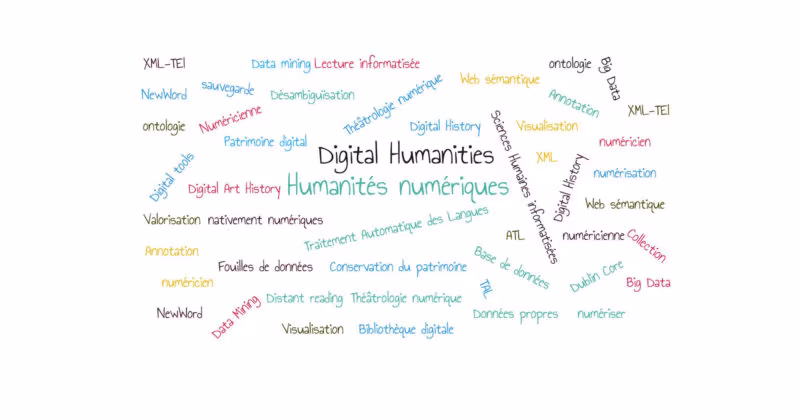 XML-TEI
Data mining
Lecture informatisée
ontologie
Big Data
NewWord
sauvegarde
Désambiguïsation
Théâtrologie numérique
Web sémantique
Annotation
XML-TEI
ontologie
Numéricienne
Patrimoine digital
Digital History
Visualisation
numéricien
Digital tools
Digital Humanities
Sciences Humaines informatisées
XML
Digital History
numérisation
Digital Art History
Humanités numériques
Web sémantique
Valorisation
nativement numériques
Traitement Automatique des Langues
ATL
numéricienne
Collection
Annotation
Fouilles de données
Conservation du patrimoine
Base de données
Dublin Core
Big Data
numéricien
Data Mining
Distant reading
Théâtrologie numérique
TAL
NewWord
Visualisation
Bibliothèque digitale
Données propres
numériser